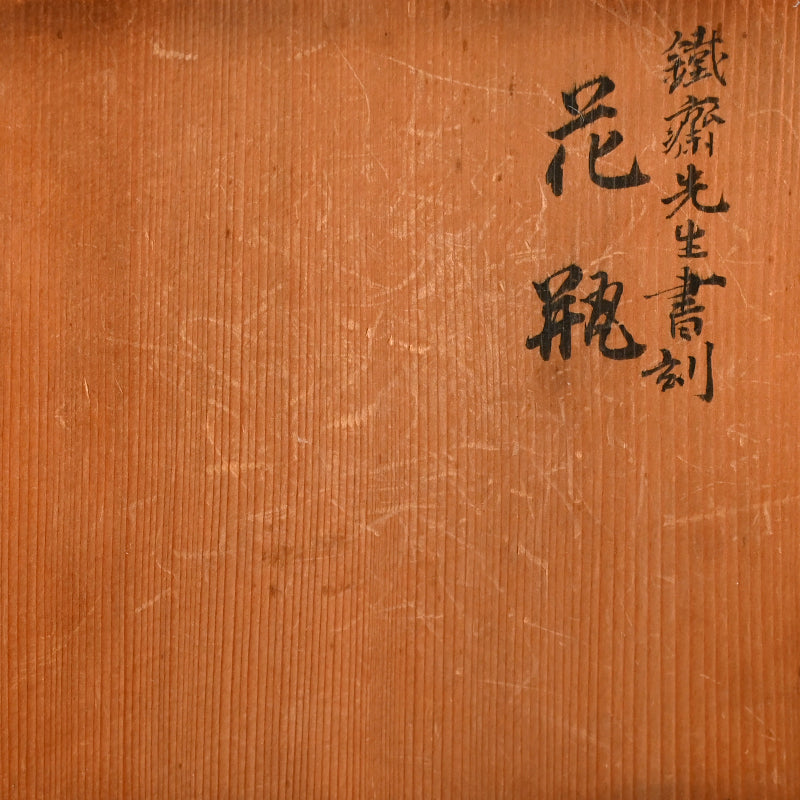 鐵齋先生書刻
花瓶